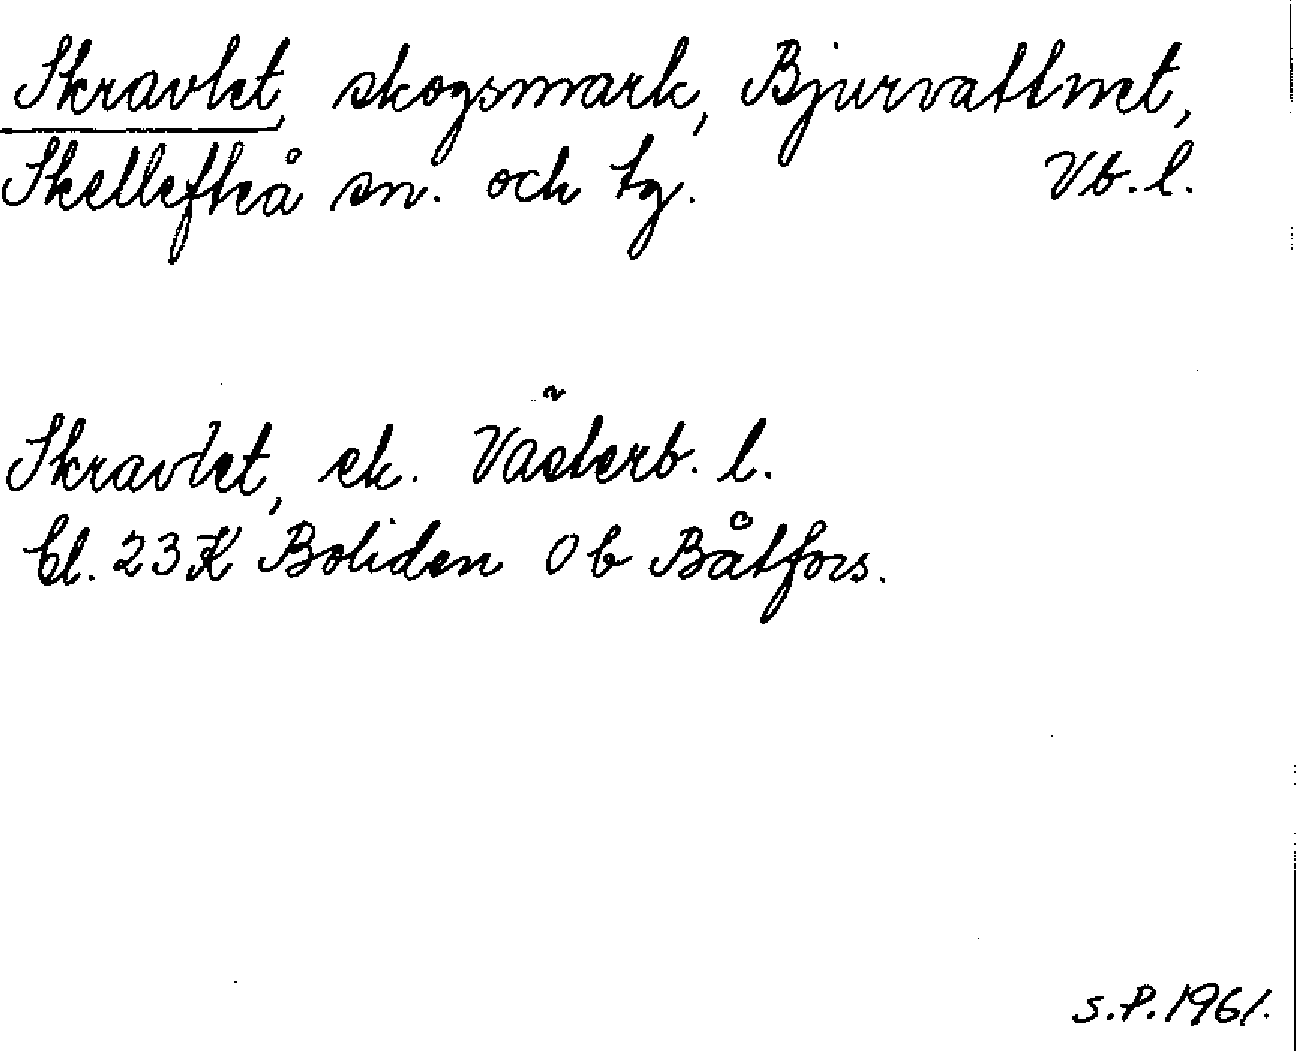 Skravlet, skogsmark, Bjurvattnet,
Skellefteå sn. och tg. Vb. l.
Skravlet, ek. Västerb. l.
Bl. 23K Boliden 0b Båtfors.
S.P. 1961.